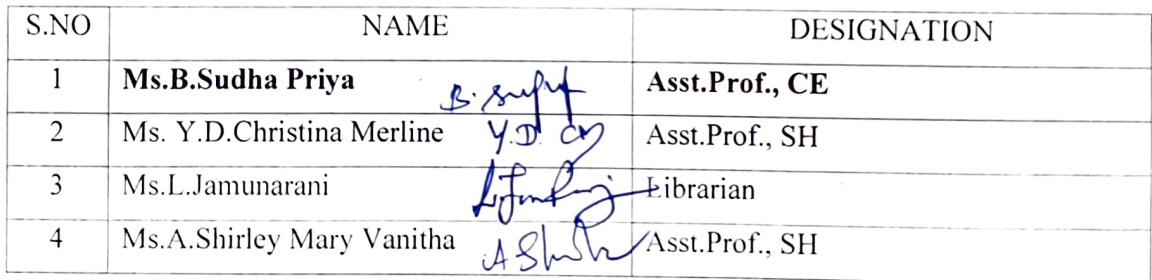 S.NO NAME DESIGNATION
1 Ms.B.Sudha Priya Asst.Prof., CE
2 Ms. Y.D.Christina Merline Y.D. Asst.Prof., SH
3 Ms.L.Jamunarani Librarian
4 Ms.A.Shirley Mary Vanitha Asst.Prof., SH